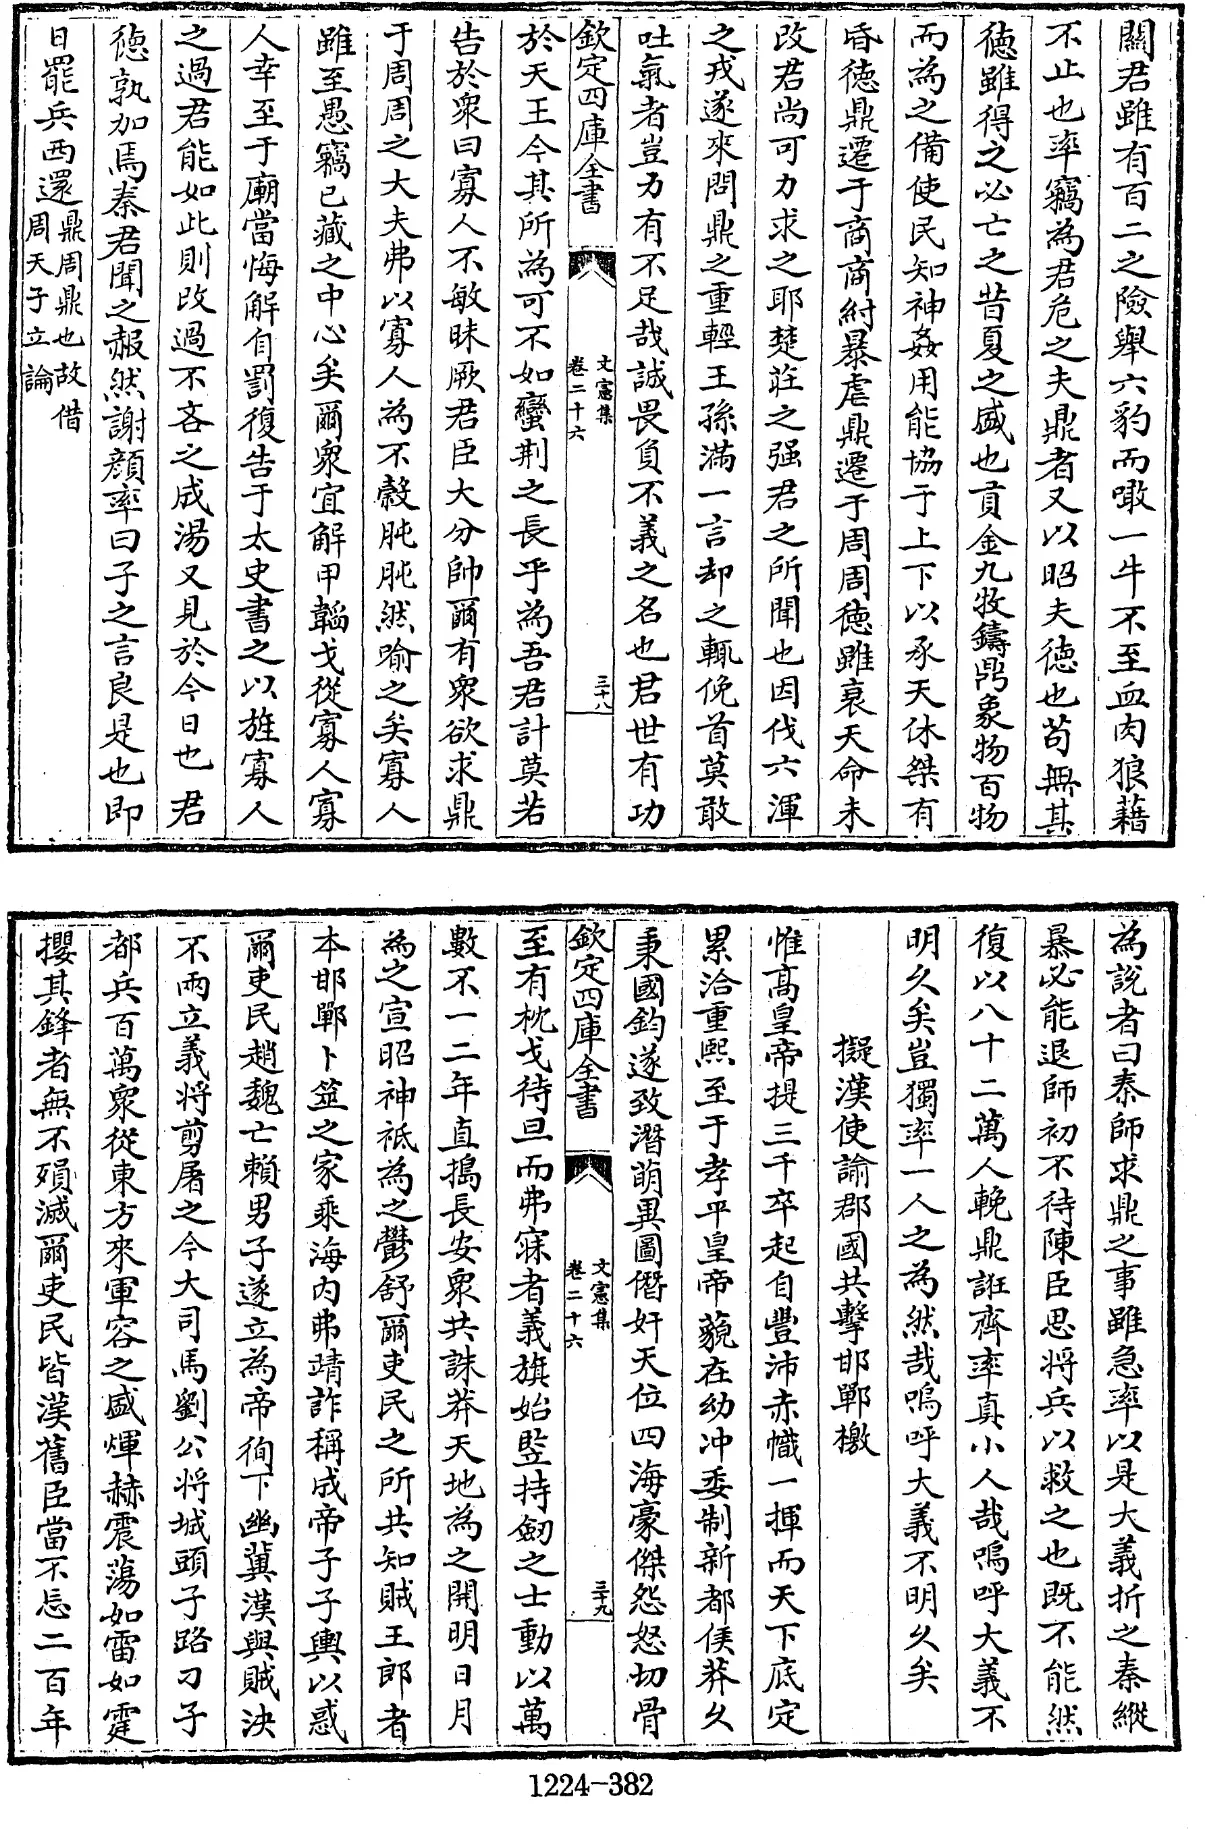 關君雖有百二之險舉六豹而噉一牛不至血肉狼藉
不止也率竊為君危之夫鼎者又以昭夫徳也茍無其
徳雖得之必亡之昔夏之盛也貢金九牧鑄鼎象物百物
而為之備使民知神姦用能協于上下以承天休桀有
昏徳鼎遷于商商紂暴虐鼎遷于周周徳雖衰天命未
改君尚可力求之耶楚莊之强君之所聞也因伐六渾
之戎遂來問鼎之重輕王孫滿一言却之輒俛首莫敢
吐氣者豈力有不足哉誠畏負不義之名也君世有功
欽定四庫全書
文憲集
卷二十六
三十八
於天王今其所為可不如蠻荆之長乎為吾君計莫若
告於衆曰寡人不敏昧厥君臣大分帥爾有衆欲求鼎
于周周之大夫弗以寡人為不穀肫肫然喻之矣寡人
雖至愚竊已藏之中心矣爾衆宜解甲韜戈從寡人寡
人幸至于廟當悔解自罰復告于太史書之以旌寡人
之過君能如此則改過不吝之成湯又見於今日也君
徳孰加焉秦君聞之赧然謝顔率曰子之言良是也即
日罷兵西還鼎周鼎也故借周天子立論
為說者曰秦師求鼎之事雖急率以是大義折之秦縱
暴必能退師初不待陳臣思将兵以救之也既不能然
復以八十二萬人輓鼎誑齊率真小人哉嗚呼大義不
明久矣豈獨率一人之為然哉嗚呼大義不明久矣
擬漢使諭郡國共擊邯鄲檄
惟髙皇帝提三千卒起自豐沛赤幟一揮而天下底定
累洽重熙至于孝平皇帝藐在幼冲委制新都侯莽久
秉國鈞遂致潛萌異圖僭奸天位四海豪傑怨怒切骨
欽定四庫全書
文憲集
卷二十六
三十九
至有枕戈待旦而弗寐者義旗始竪持劒之士動以萬
數不一二年直搗長安衆共誅莽天地為之開明日月
為之宣昭神祇為之鬱舒爾吏民之所共知賊王郎者
本邯鄲卜筮之家乘海内弗靖詐稱成帝子子輿以惑
爾吏民趙魏亡賴男子遂立為帝徇下幽冀漢與賊決
不兩立義将剪屠之今大司馬劉公将城頭子路刁子
都兵百萬衆從東方來軍容之盛煇赫震蕩如雷如霆
攖其鋒者無不殞滅爾吏民皆漢舊臣當不忘二百年
1224-382